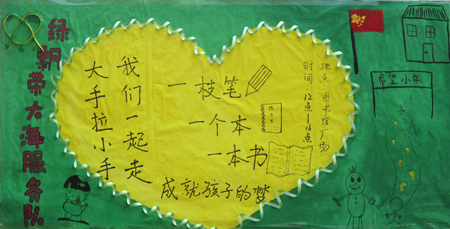 绿朝带大海服务队
大手拉小手
我们一起走
一枝笔
一个本
一本书
成就孩子的梦
地点:图书馆广场
时间:12点—16点
希望小学